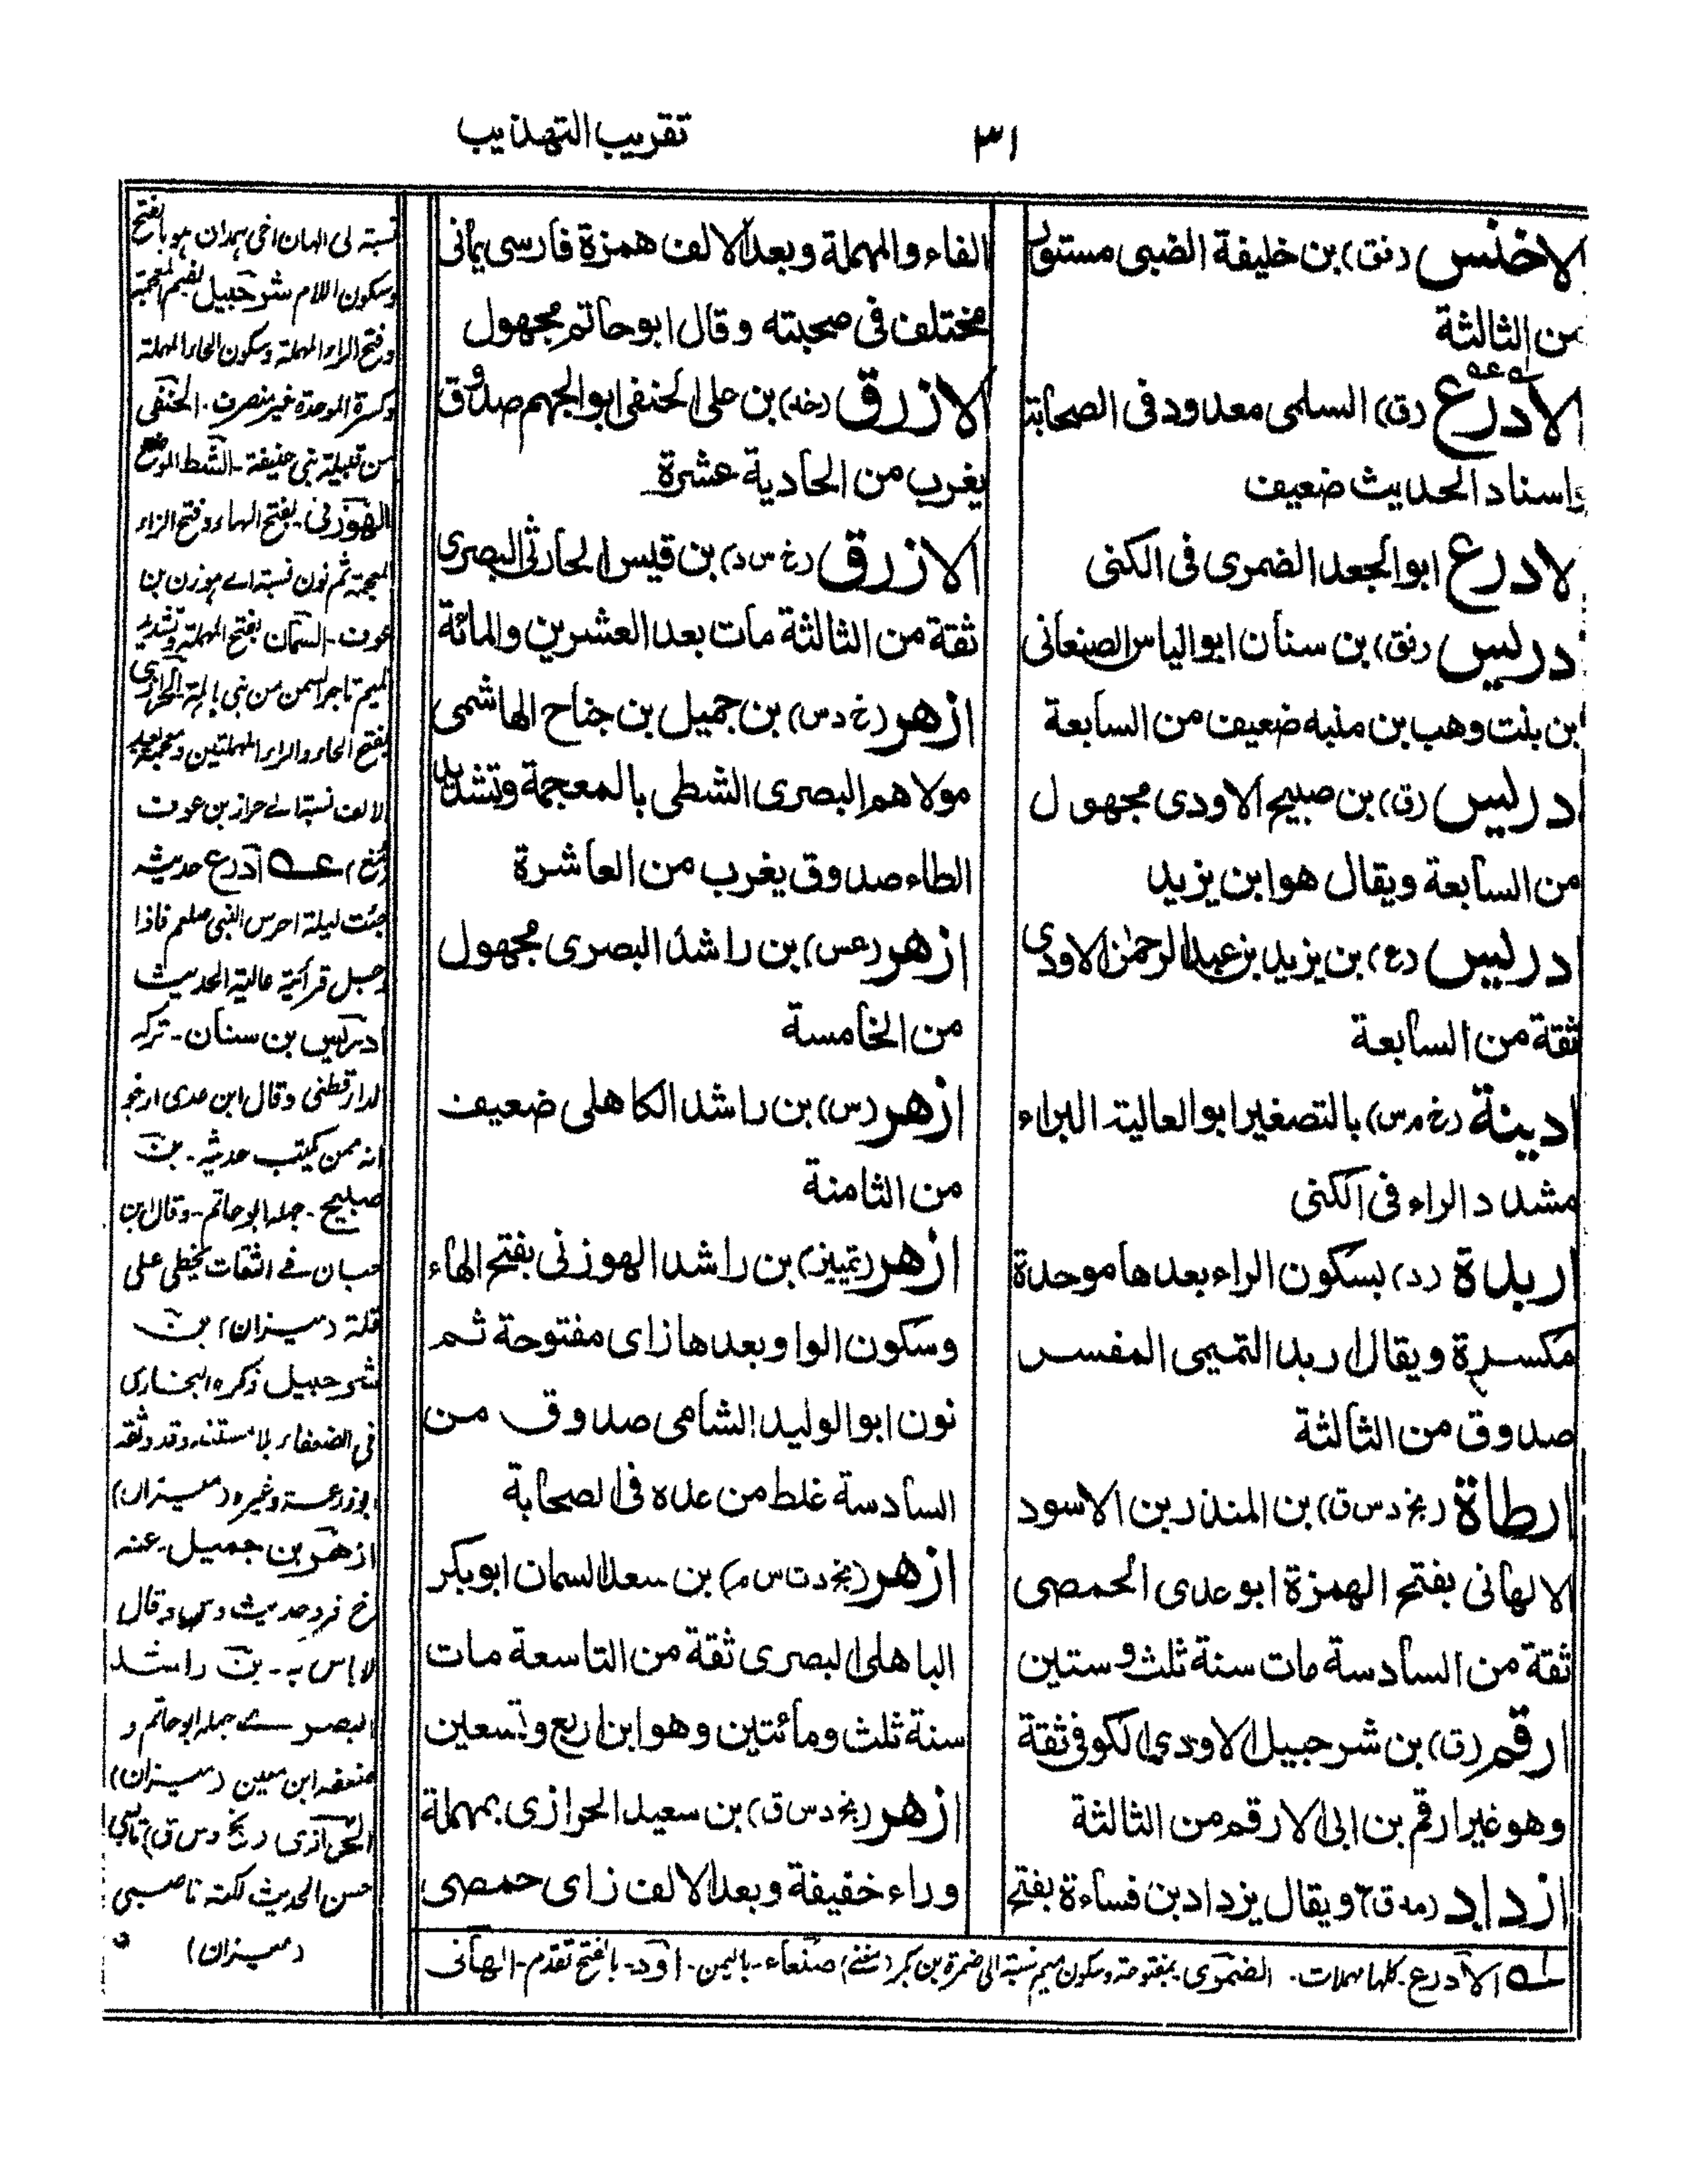 تقريب التهذيب
٣١
الاخنس (فق) بن خليفة الضبى مستور
من الثالثة
الادرع (ق) السلمى معدود فى الصحابة
واسناد الحديث ضعيف
لادرع ابوالجعد الضمرى فى الكنى
دريس (فق) بن سنان ابوالياس الصنعانى
بن بنت وهب بن منبه ضعيف من السابعة
ادريس (ق) بن صبيح الاودى مجهول
من السابعة ويقال هو ابن يزيد
ادريس (ع) بن يزيد بن عبدالرحمٰن الاودى
ثقة من السابعة
ادينة (خ م س) بالتصغير ابوالعالية البراء
مشدد الراء فى الكنى
اربدة (د) بسكون الراء بعدها موحدة
مكسرة ويقال اربد التميمى المفسر
صدوق من الثالثة
ارطاة (بخ د س ق) بن المنذر بن الاسود
الالهانى بفتح الهمزة ابوعدى الحمصى
ثقة من السادسة مات سنة ثلث وستين
ارقم (ق) بن شرحبيل الاودى الكوفى ثقة
وهو غير ارقم بن ابى الارقم من الثالثة
ازداد (مد ق) ويقال يزداد بن فساءة بفتح
الفاء والمهملة وبعد الالف همزة فارسى يمانى
مختلف فى صحبته وقال ابوحاتم مجهول
الازرق (خد) بن على الحنفى ابوالجهم صدوق
يغرب من الحادية عشرة
الازرق (خ س د) بن قيس الحارثى البصرى
ثقة من الثالثة مات بعد العشرين والمائة
ازهر (خ د س) بن جميل بن جناح الهاشمى
مولاهم البصرى الشطى بالمعجمة وتشديد
الطاء صدوق يغرب من العاشرة
ازهر (عس) بن راشد البصرى مجهول
من الخامسة
ازهر (س) بن راشد الكاهلى ضعيف
من الثامنة
ازهر (تمييز) بن راشد الهوزنى بفتح الهاء
وسكون الواو بعدها زاى مفتوحة ثم
نون ابوالوليد الشامى صدوق من
السادسة غلط من عده فى الصحابة
ازهر (خ د ت س م) بن سعد السمان ابوبكر
الباهلى البصرى ثقة من التاسعة مات
سنة ثلث ومائتين وهو ابن اربع وتسعين
ازهر (بخ د س ق) بن سعيد الحرازى بمهملة
وراء خفيفة وبعد الالف زاى حمصى
نسبة الى الهان اخى همدان هو بالفتح
وسكون اللام شرحبيل بضم المعجمة
وفتح الراء المهملة وسكون الحاء المهملة
وكسرة الموحدة غير منصرف . الحنفى
من قبيلة بنى حنيفة - الشط الموضع
الهوزنى بفتح الهاء وفتح الزاء
المعجمة ثم نون نسبة اے هوزن بن
عوف - السمان بفتح المهملة وتشديد
الميم تاجر السمن من بنى باهلة الحرازى
بفتح الحاء والراء المهملتين ومعجمة بعد
الالف نسبة الے حراز بن عوف
عه ادرع حديثه
جئت ليلة احرس النبى صلعم فاذا
رجل قرأته عالية الحديث
ادريس بن سنان - تركه
الدارقطنى وقال ابن عدى ارجو
انه ممن يكتب حديثه - بن
صبيح - جهله ابوحاتم - وقال ابن
حبان فے الثقات يخطى على
قلته (ميزان) بن
شرحبيل ذكره البخارى
فى الضعفاء وقد وثقه
ابوزرعة وغيره (ميزان)
ازهر بن جميل - عنه
خ فرد حديث وس وقال
لا باس به - بن راشد
البصرے جهله ابوحاتم و
ضعفه ابن معين (ميزان)
الحرازى (بخ د س ق) تابعى
حسن الحديث لكنه ناصبى
(ميزان)
له الادرع - كلها مهملات - الضمرى بمفتوحة وسكون ميم نسبة الى ضمرة بن بكر (مغنى) صنعاء - باليمن - اود - بالفتح تقدم - الهانى